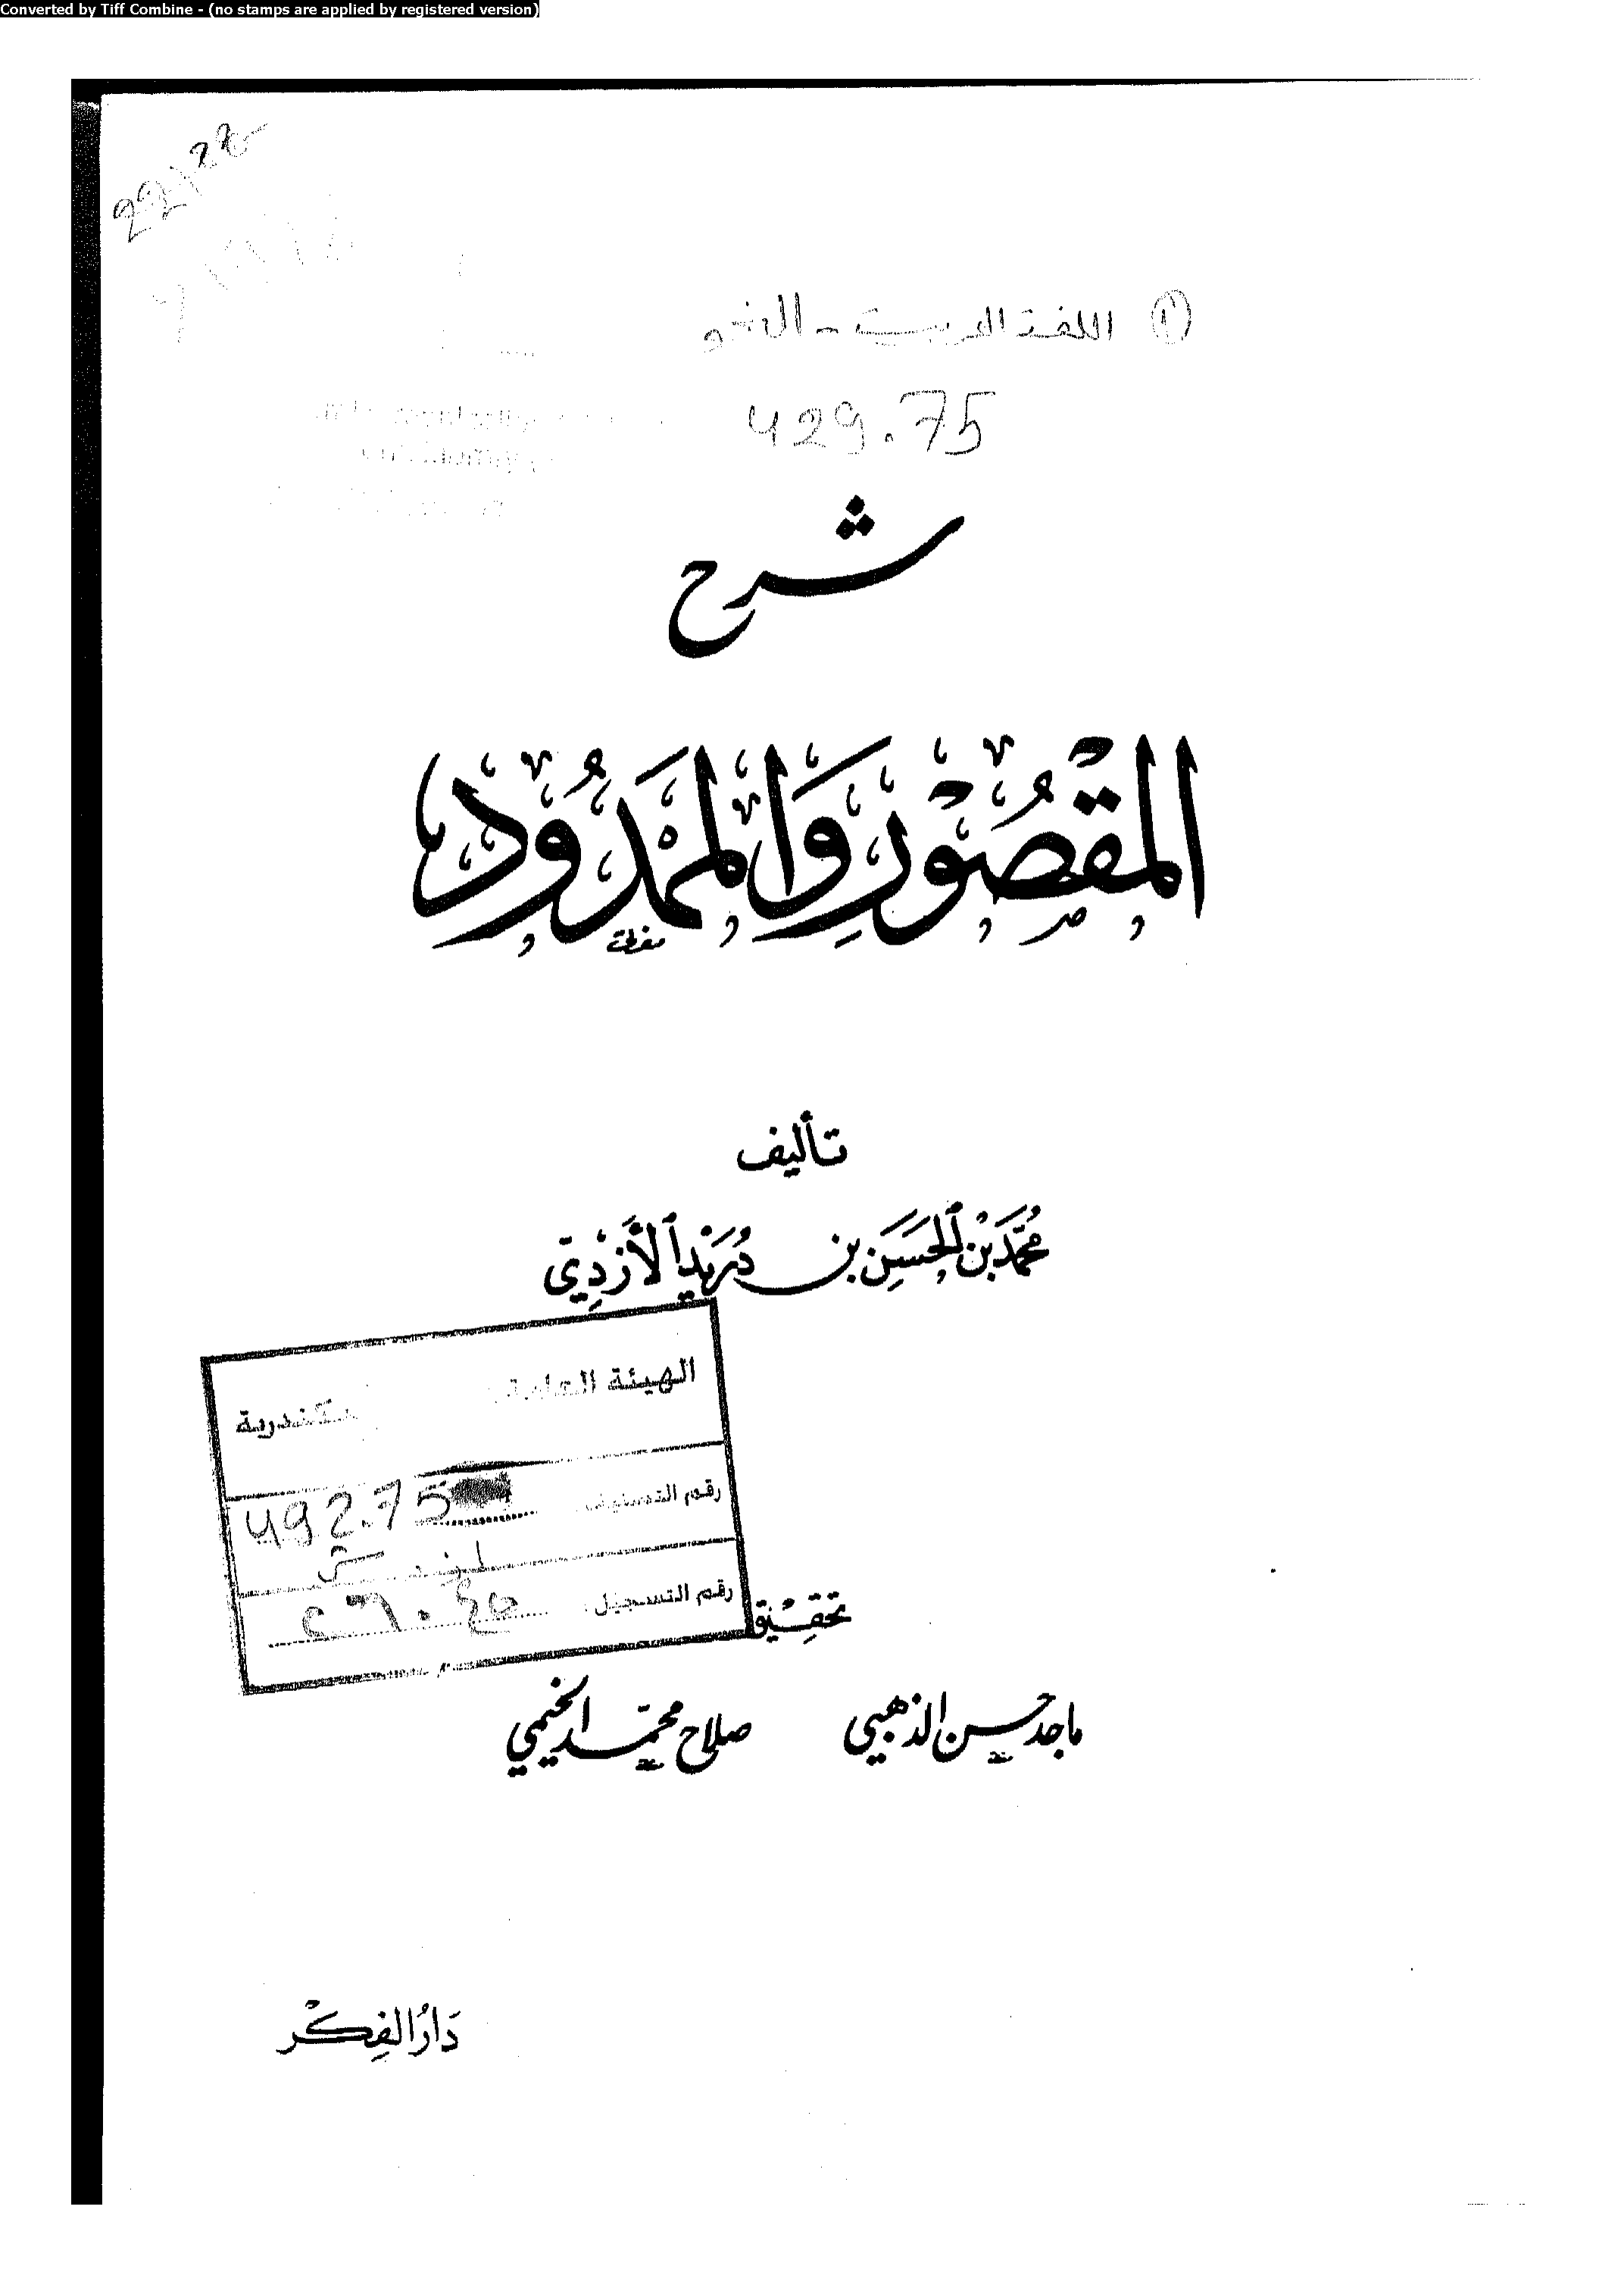 Converted by Tiff Combine - (no stamps are applied by registered version)
22122
① اللغة العربية - النحو
429.75
شرح
المَقْصُورِ وَالمَمْدُودِ
تأليف
مُحَمَّد بْن الحَسَن بن دُرَيْد الأَزْدِيّ
الهيئة العامة
كندرية
رقم التصنيف
492.75
رقم التسجيل
تحقيق
ماجد حسن الذهبي
صلاح محمد الخيمي
دَارُ الفِكْر